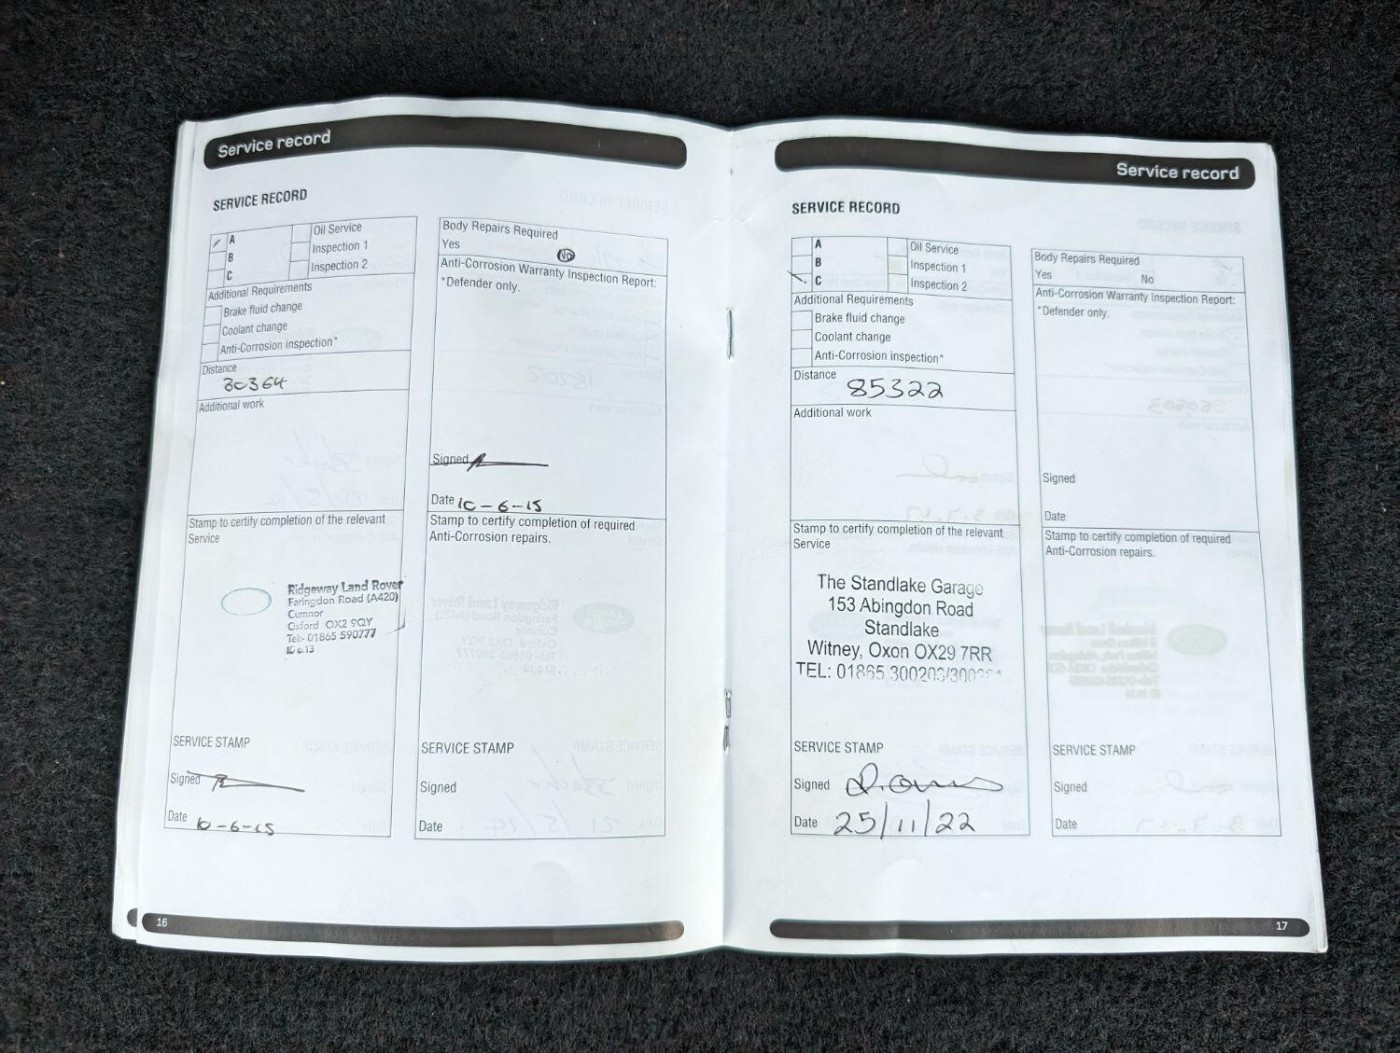 Service record
SERVICE RECORD
A
B
C
Oil Service
Inspection 1
Inspection 2
Additional Requirements
Brake fluid change
Coolant change
Anti-Corrosion inspection*
Distance
30364
Additional work
Stamp to certify completion of the relevant
Service
Ridgeway Land Rover
Faringdon Road (A420)
Cumnor
Oxford OX2 9QY
Tel:- 01865 590777
SERVICE STAMP
Signed
Date 10-6-15
Body Repairs Required
Yes No
Anti-Corrosion Warranty Inspection Report:
*Defender only.
Signed
Date 10-6-15
Stamp to certify completion of required
Anti-Corrosion repairs.
SERVICE STAMP
Signed
Date
16
Service record
SERVICE RECORD
A
B
C
Oil Service
Inspection 1
Inspection 2
Additional Requirements
Brake fluid change
Coolant change
Anti-Corrosion inspection*
Distance 85322
Additional work
Stamp to certify completion of the relevant
Service
The Standlake Garage
153 Abingdon Road
Standlake
Witney, Oxon OX29 7RR
TEL: 01865 300203
SERVICE STAMP
Signed
Date 25/11/22
Body Repairs Required
Yes No
Anti-Corrosion Warranty Inspection Report:
*Defender only.
Signed
Date
Stamp to certify completion of required
Anti-Corrosion repairs.
SERVICE STAMP
Signed
Date
17